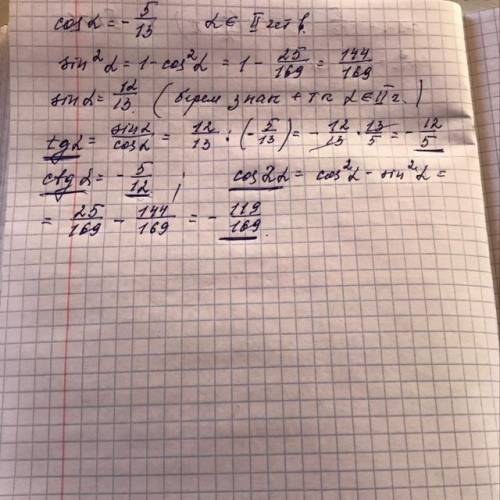 cos α = - 5/13 α ∈ II четв.
sin² α = 1 - cos² α = 1 - 25/169 = 144/169
sin α = 12/13. (берем знак + тк α ∈ II ч.)
tg α = sin α/cos α = 12/13 : (- 5/13) = - 12/13 · 13/5 = - 12/5
ctg α = - 5/12 ; cos 2α = cos² α - sin² α =
= 25/169 - 144/169 = - 119/169.